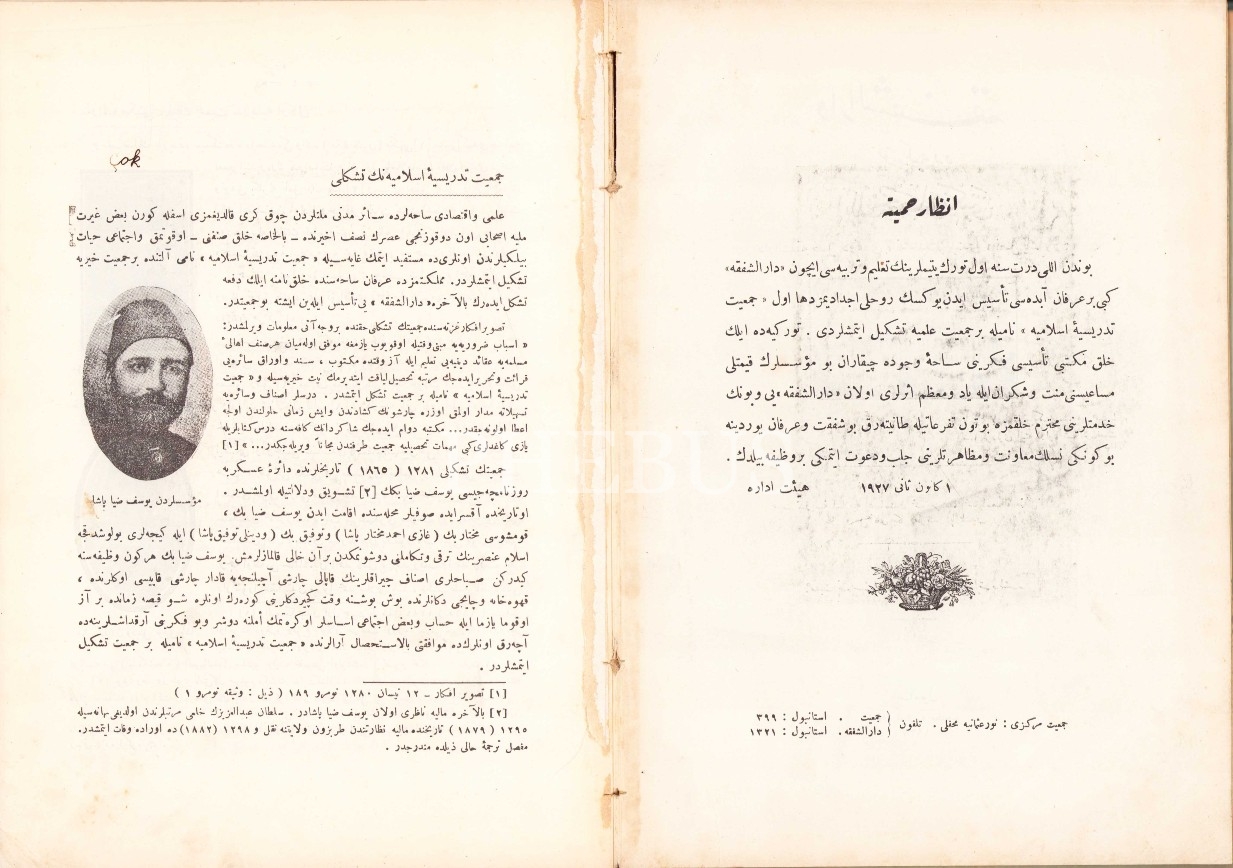 انظار حمیته
بوندن اللی درت سنه اول تورك یتیملرینك تعلیم و تربیه سی ایچون «دار الشفقه»
كبی بر عرفان آبده سی تأسیس ایدن یوكسك روحلی اجدادیمزدها اول « جمعیت
تدریسیهٔ اسلامیه » نامیله بر جمعیت علمیه تشكیل ایتمشلردی . توركیه ده ایلك
خلق مكتبی تأسیسی فكرینی ساحهٔ وجوده چیقاران بو مؤسسلرك قیمتلی
مساعیسنی منت و شكران ایله یاد و معظم اثرلری اولان « دار الشفقه » یی و بونك
خدمتلرینی محترم خلقمزه بوتون تفرعاتیله طانیته رق بو شفقت و عرفان یوردینه
بو كونكی نسلك معاونت و مظاهرتلرینی جلب و دعوت ایتمكی بر وظیفه بیلدك .
١ كانون ثانی ١٩٢٧ هیئت اداره
جمعیت مركزی : نور عثمانیه محفلی . تلفون
جمعیت . استانبول : ٣٩٩
دار الشفقه . استانبول : ١٣٢١
çok
جمعیت تدریسیهٔ اسلامیه نك تشكلی
علمی و اقتصادی ساحه لرده سائر مدنی ملتلردن چوق كری قالدیغمزی اسفله كورن بعض غیرت
ملیه اصحابی اون دوقوزنجی عصرك نصف اخیرنده ـ بالخاصه خلق صنفنی ـ اوقوتمق و اجتماعی حیات
بیلكیلرندن اونلری ده مستفید ایتمك غایه سیله « جمعیت تدریسیهٔ اسلامیه » نامی آلتنده بر جمعیت خیریه
تشكیل ایتمشلردر. مملكتمزده عرفان ساحه سنده خلق نامنه ایلك دفعه
تشكل ایده رك بالآخره « دار الشفقه » یی تأسیس ایله ین ایشته بو جمعیتدر.
تصویر افكار غزته سنده جمعیتك تشكلی حقنده بروجه آتی معلومات ویرلمشدر :
« اسباب ضروریه یه مبنی وقتیله اوقویوب یازمغه موفق اوله میان هر صنف اهالیٔ
مسلمه یه عقائد دینیه یی تعلیم ایله آز وقتده مكتوب ، سند و اوراق سائره یی
قرائت و تحریر ایده جك مرتبه تحصیل لیاقت ایتدیرمك نیت خیریه سیله و « جمعیت
تدریسیهٔ اسلامیه » نامیله بر جمعیت تشكل ایتمشدر . درسلر اصناف و سائره یه
تسهیلاته مدار اولمق اوزره چارشونك كشادندن و ایش زمانی حلولندن اولجه
اعطا اولونه مقدر... مكتبه دوام ایده جك شاكردانك كافه سنه درس كتابلریله
یازی كاغدلری كبی مهمات تحصیلیه جمعیت طرفندن مجاناً ویریله جكدر... » [١]
جمعیتك تشكیلی ١٢٨١ ( ١٨٦٥ ) تاریخلرنده دائرهٔ عسكریه
روزنامچه جیسی یوسف ضیا بكك [٢] تشویق و دلالتیله اولمشدر .
او تاریخده آقسرایده صوفیلر محله سنده اقامت ایدن یوسف ضیا بك ،
قومشوسی مختار بك ( غازی احمد مختار پاشا ) و توفیق بك ( ودینلی توفیق پاشا ) ایله كیجه لری بولوشدقجه
اسلام عنصرینك ترقی و تكاملنی دوشونمكدن بر آن خالی قالمازلرمش. یوسف ضیا بك هركون وظیفه سنه
كیدركن صباحلری اصناف چیراقلرینك قاپالی چارشی آچیلنجه یه قادار چارشی قاپیسی اوكلرنده ،
قهوه خانه و چایجی دكانلرنده بوش بوشنه وقت كچیردكلرینی كوره رك اونلره شو قیصه زمانده بر آز
اوقوما یازما ایله حساب و بعض اجتماعی اساسلر اوكره تمك أملنه دوشر و بو فكرینی آرقداشلرینه ده
آچه رق اونلرك ده موافقتی بالاستحصال آرالرنده « جمعیت تدریسیهٔ اسلامیه » نامیله بر جمعیت تشكیل
ایتمشلردر .
مؤسسلردن یوسف ضیا پاشا
[١] تصویر افكار ـ ١٢ نیسان ١٢٨٠ نومرو ١٨٩ ( ذیل : وثیقه نومرو ١ )
[٢] بالآخره مالیه ناظری اولان یوسف ضیا پاشادر . سلطان عبدالعزیزك خلعی مرتبلرندن اولدیغی بهانه سیله
١٢٩٥ ( ١٨٧٩ ) تاریخنده مالیه نظارتندن طربزون ولایتنه نقل و ١٢٩٨ (١٨٨٢) ده اوراده وفات ایتمشدر.
مفصل ترجمهٔ حالی ذیلده مندرجدر .